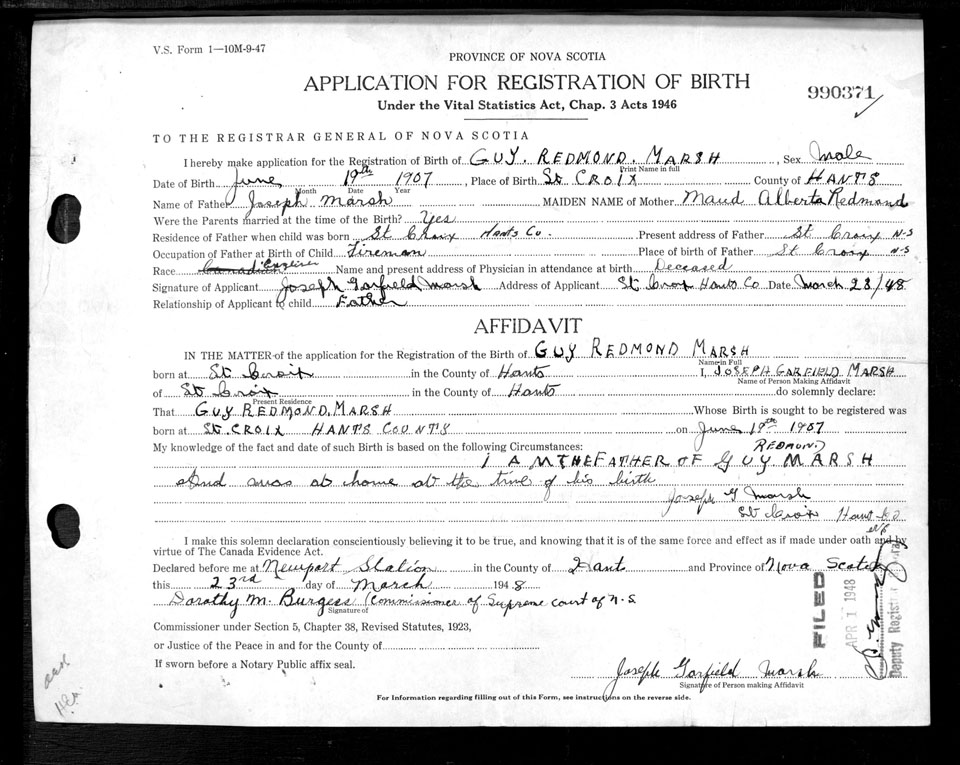 V.S. Form 1—10M-9-47
PROVINCE OF NOVA SCOTIA
APPLICATION FOR REGISTRATION OF BIRTH
990371
Under the Vital Statistics Act, Chap. 3 Acts 1946
TO THE REGISTRAR GENERAL OF NOVA SCOTIA
I hereby make application for the Registration of Birth of GUY. REDMOND. MARSH, Sex Male
Print Name in full
Date of Birth June 19th 1907, Place of Birth St CROIX County of HANTS
Month Date Year
Name of Father Joseph Marsh MAIDEN NAME of Mother Maud Alberta Redmond
Were the Parents married at the time of the Birth? Yes
Residence of Father when child was born St Croix Hants Co. Present address of Father St Croix N-S
Occupation of Father at Birth of Child Fireman Place of birth of Father St Croix N-S
Race Canadian Name and present address of Physician in attendance at birth Deceased
Signature of Applicant Joseph Garfield Marsh Address of Applicant St Croix Hants Co Date March 23/48
Relationship of Applicant to child Father
AFFIDAVIT
IN THE MATTER of the application for the Registration of the Birth of GUY REDMOND MARSH
Name in Full
born at St Croix in the County of Hants I, JOSEPH GARFIELD MARSH
Name of Person Making Affidavit
of St Croix in the County of Hants do solemnly declare:
Present Residence
That GUY REDMOND. MARSH Whose Birth is sought to be registered was
born at St. CROIX HANTS COUNTS on June 19th 1907
My knowledge of the fact and date of such Birth is based on the following Circumstances:
REDMOND
I AM THE FATHER OF GUY MARSH
And was at home at the time of his birth
Joseph G Marsh
St Croix Hants
I make this solemn declaration conscientiously believing it to be true, and knowing that it is of the same force and effect as if made under oath and by
virtue of The Canada Evidence Act.
Declared before me at Newport Station in the County of Hants and Province of Nova Scotia
this 23rd day of March 1948
Dorothy M. Burgess (Commissioner of Supreme court of N.S
Signature of
Commissioner under Section 5, Chapter 38, Revised Statutes, 1923,
or Justice of the Peace in and for the County of
If sworn before a Notary Public affix seal.
FILED
APR 1 1948
Deputy Registrar
Joseph Garfield Marsh
Signature of Person making Affidavit
For Information regarding filling out of this Form, see instructions on the reverse side.